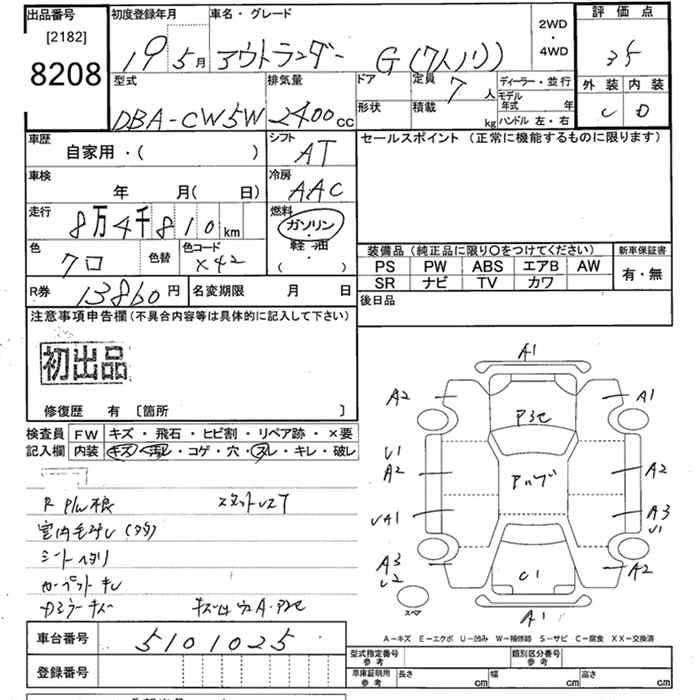 出品番号
[2182]
8208
初度登録年月
19 5月
車名・グレード
アウトランダー G(7人ノリ)
2WD
・
4WD
評価点
35
外装 内装
C D
型式
DBA-CW5W
排気量
2400cc
ドア
形状
定員 7人
積載 kg
ディーラー・並行
モデル年式 年
ハンドル 左・右
車歴
自家用・( )
シフト
AT
セールスポイント (正常に機能するものに限ります)
車検
年 月( 日)
冷房
AAC
走行
8万4千810km
燃料
ガソリン
・
軽油
( ・ )
色
クロ
色替
色コード
X42
装備品(純正品に限り〇をつけてください)
新車保証書
PS PW ABS エアB AW
SR ナビ TV カワ
有・無
R券 13860円
名変期限 月 日
後日品
注意事項申告欄(不具合内容等は具体的に記入して下さい)
初出品
修復歴 有 [箇所 ]
検査員
記入欄
FW キズ・飛石・ヒビ割・リペア跡・×要
内装 キズ・汚レ・コゲ・穴・スレ・キレ・破レ
シートヘタリ
車台番号 5101025
登録番号
A1
A2
A1
U1
A2
A2
A3
U1
A3
U2
A2
A1
スペア
A-キズ E-エクボ U-凹み W-補修跡 S-サビ C-腐食 XX-交換済
型式指定番号
参考
類別区分番号
参考
車庫証明用
参考
長さ cm
幅 cm
高さ cm